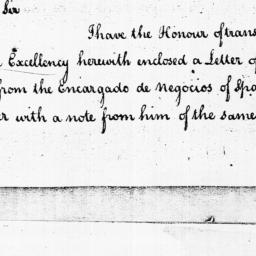 Sir
I have the Honour of trans
Excellency herewith enclosed a Letter of
from the Encargado de Negocios of Spa
er with a note from him of the same